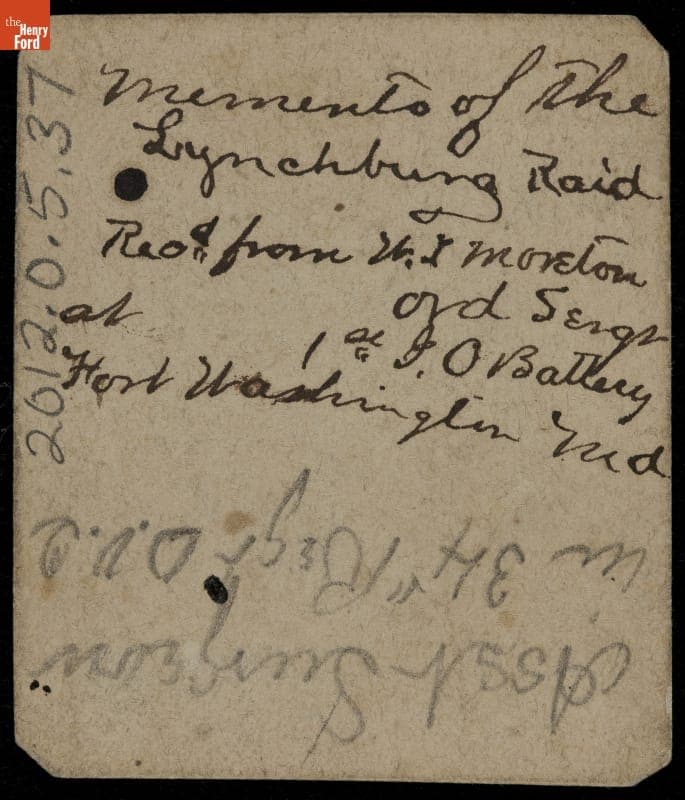 the
Henry
Ford
2012.0.5.37
Memento of the
Lynchburg Raid
Recd. from W. I Moreton
at Ord Sergt
1st I. O Battery
Fort Washington Md
Asst Surgeon
in 34" Regt O.V.I.